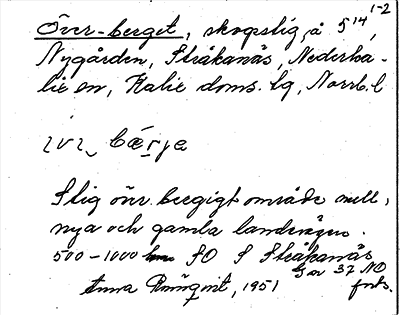 1-2
Över-berget, skogstig, å 5¹⁴,
Nygården, Stråkanäs, Nederka-
lix sn, Kalix doms. lg, Norrb. l
bærje
Stig över bergigt område mell.
nya och gamla landsvägen.
500-1000 SO S Stråkanäs
5 on 37 NO
Anna Rönnqvist, 1951 fnls.